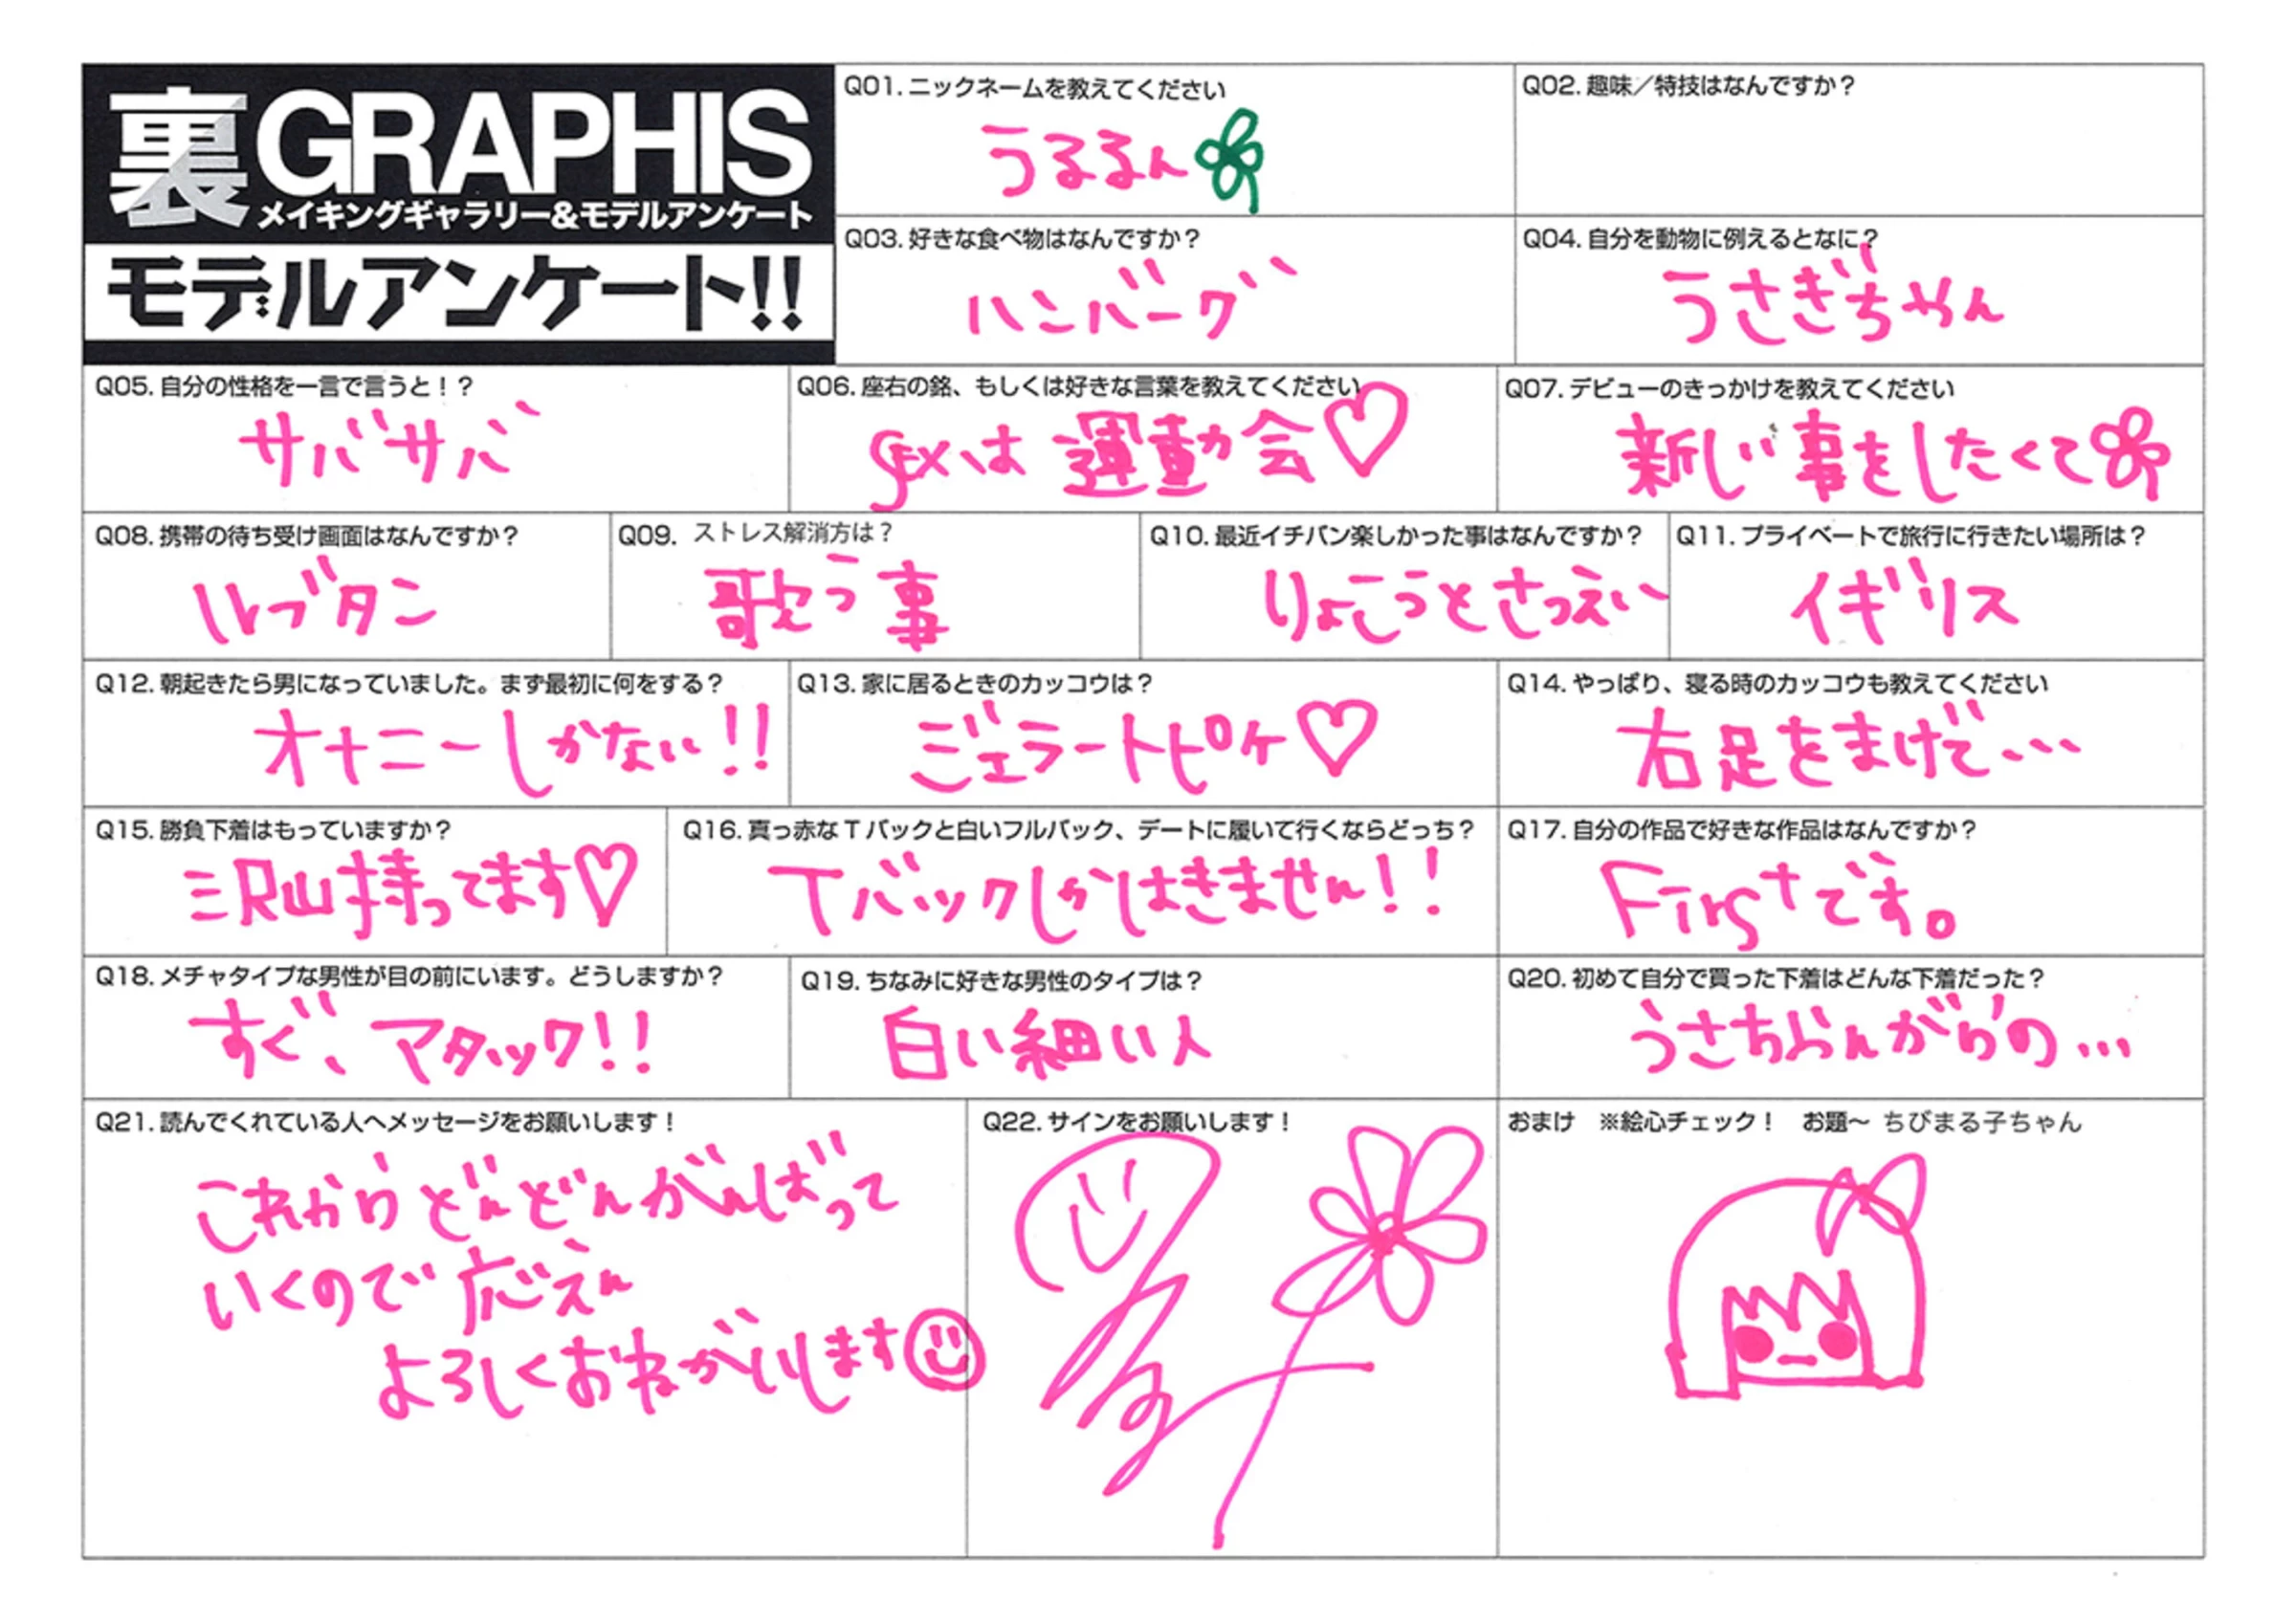 裏GRAPHIS
メイキングギャラリー&モデルアンケート
モデルアンケート!!
Q01.ニックネームを教えてください
うるるん
Q02.趣味／特技はなんですか？
Q03.好きな食べ物はなんですか？
ハンバーグ
Q04.自分を動物に例えるとなに？
うさぎちゃん
Q05.自分の性格を一言で言うと！？
サバサバ
Q06.座右の銘、もしくは好きな言葉を教えてください
sexは運動会♡
Q07.デビューのきっかけを教えてください
新しい事をしたくて
Q08.携帯の待ち受け画面はなんですか？
ルブタン
Q09. ストレス解消方は？
歌う事
Q10.最近イチバン楽しかった事はなんですか？
りょこうとさつえい
Q11.プライベートで旅行に行きたい場所は？
イギリス
Q12.朝起きたら男になっていました。まず最初に何をする？
オナニーしかない!!
Q13.家に居るときのカッコウは？
ジェラートピケ♡
Q14.やっぱり、寝る時のカッコウも教えてください
右足をまげて…
Q15.勝負下着はもっていますか？
沢山持ってます♡
Q16.真っ赤なTバックと白いフルバック、デートに履いて行くならどっち？
Tバックしかはきません!!
Q17.自分の作品で好きな作品はなんですか？
Firstです。
Q18.メチャタイプな男性が目の前にいます。どうしますか？
すぐ、アタック!!
Q19.ちなみに好きな男性のタイプは？
白い細い人
Q20.初めて自分で買った下着はどんな下着だった？
うさちゃんがらの…
Q21.読んでくれている人へメッセージをお願いします！
これからどんどんがんばって
いくので応えん
よろしくおねがいします
Q22.サインをお願いします！
おまけ ※絵心チェック！ お題〜 ちびまる子ちゃん